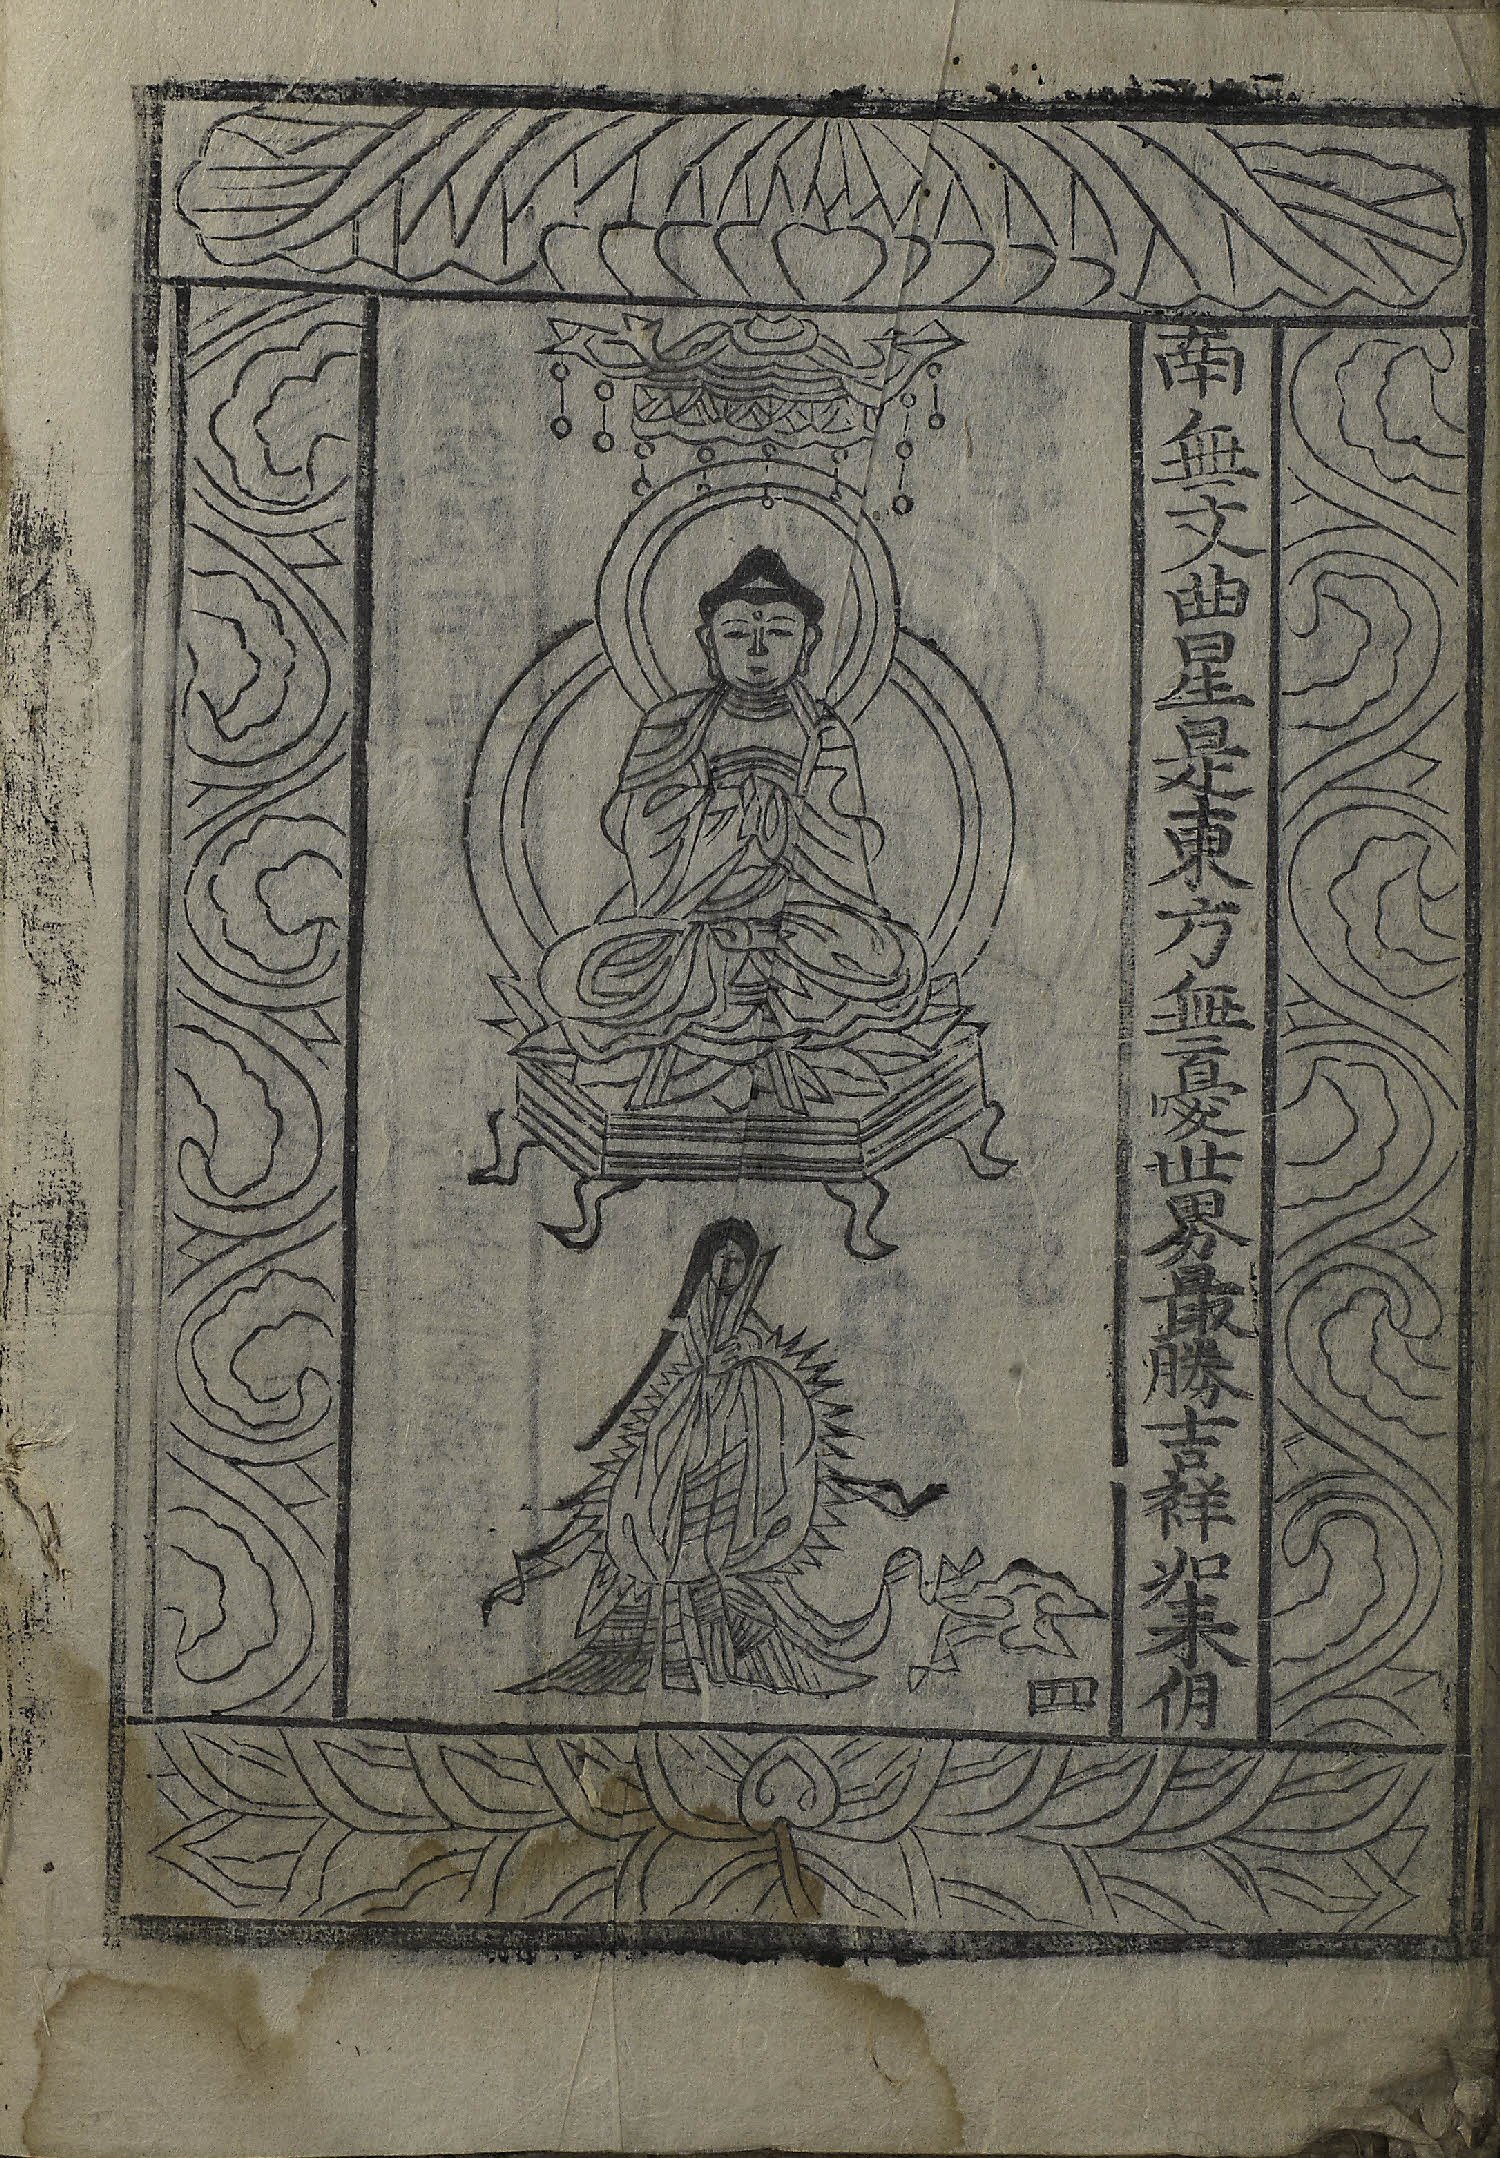 南無文曲星是東方無憂世界最勝吉祥如来佛
四